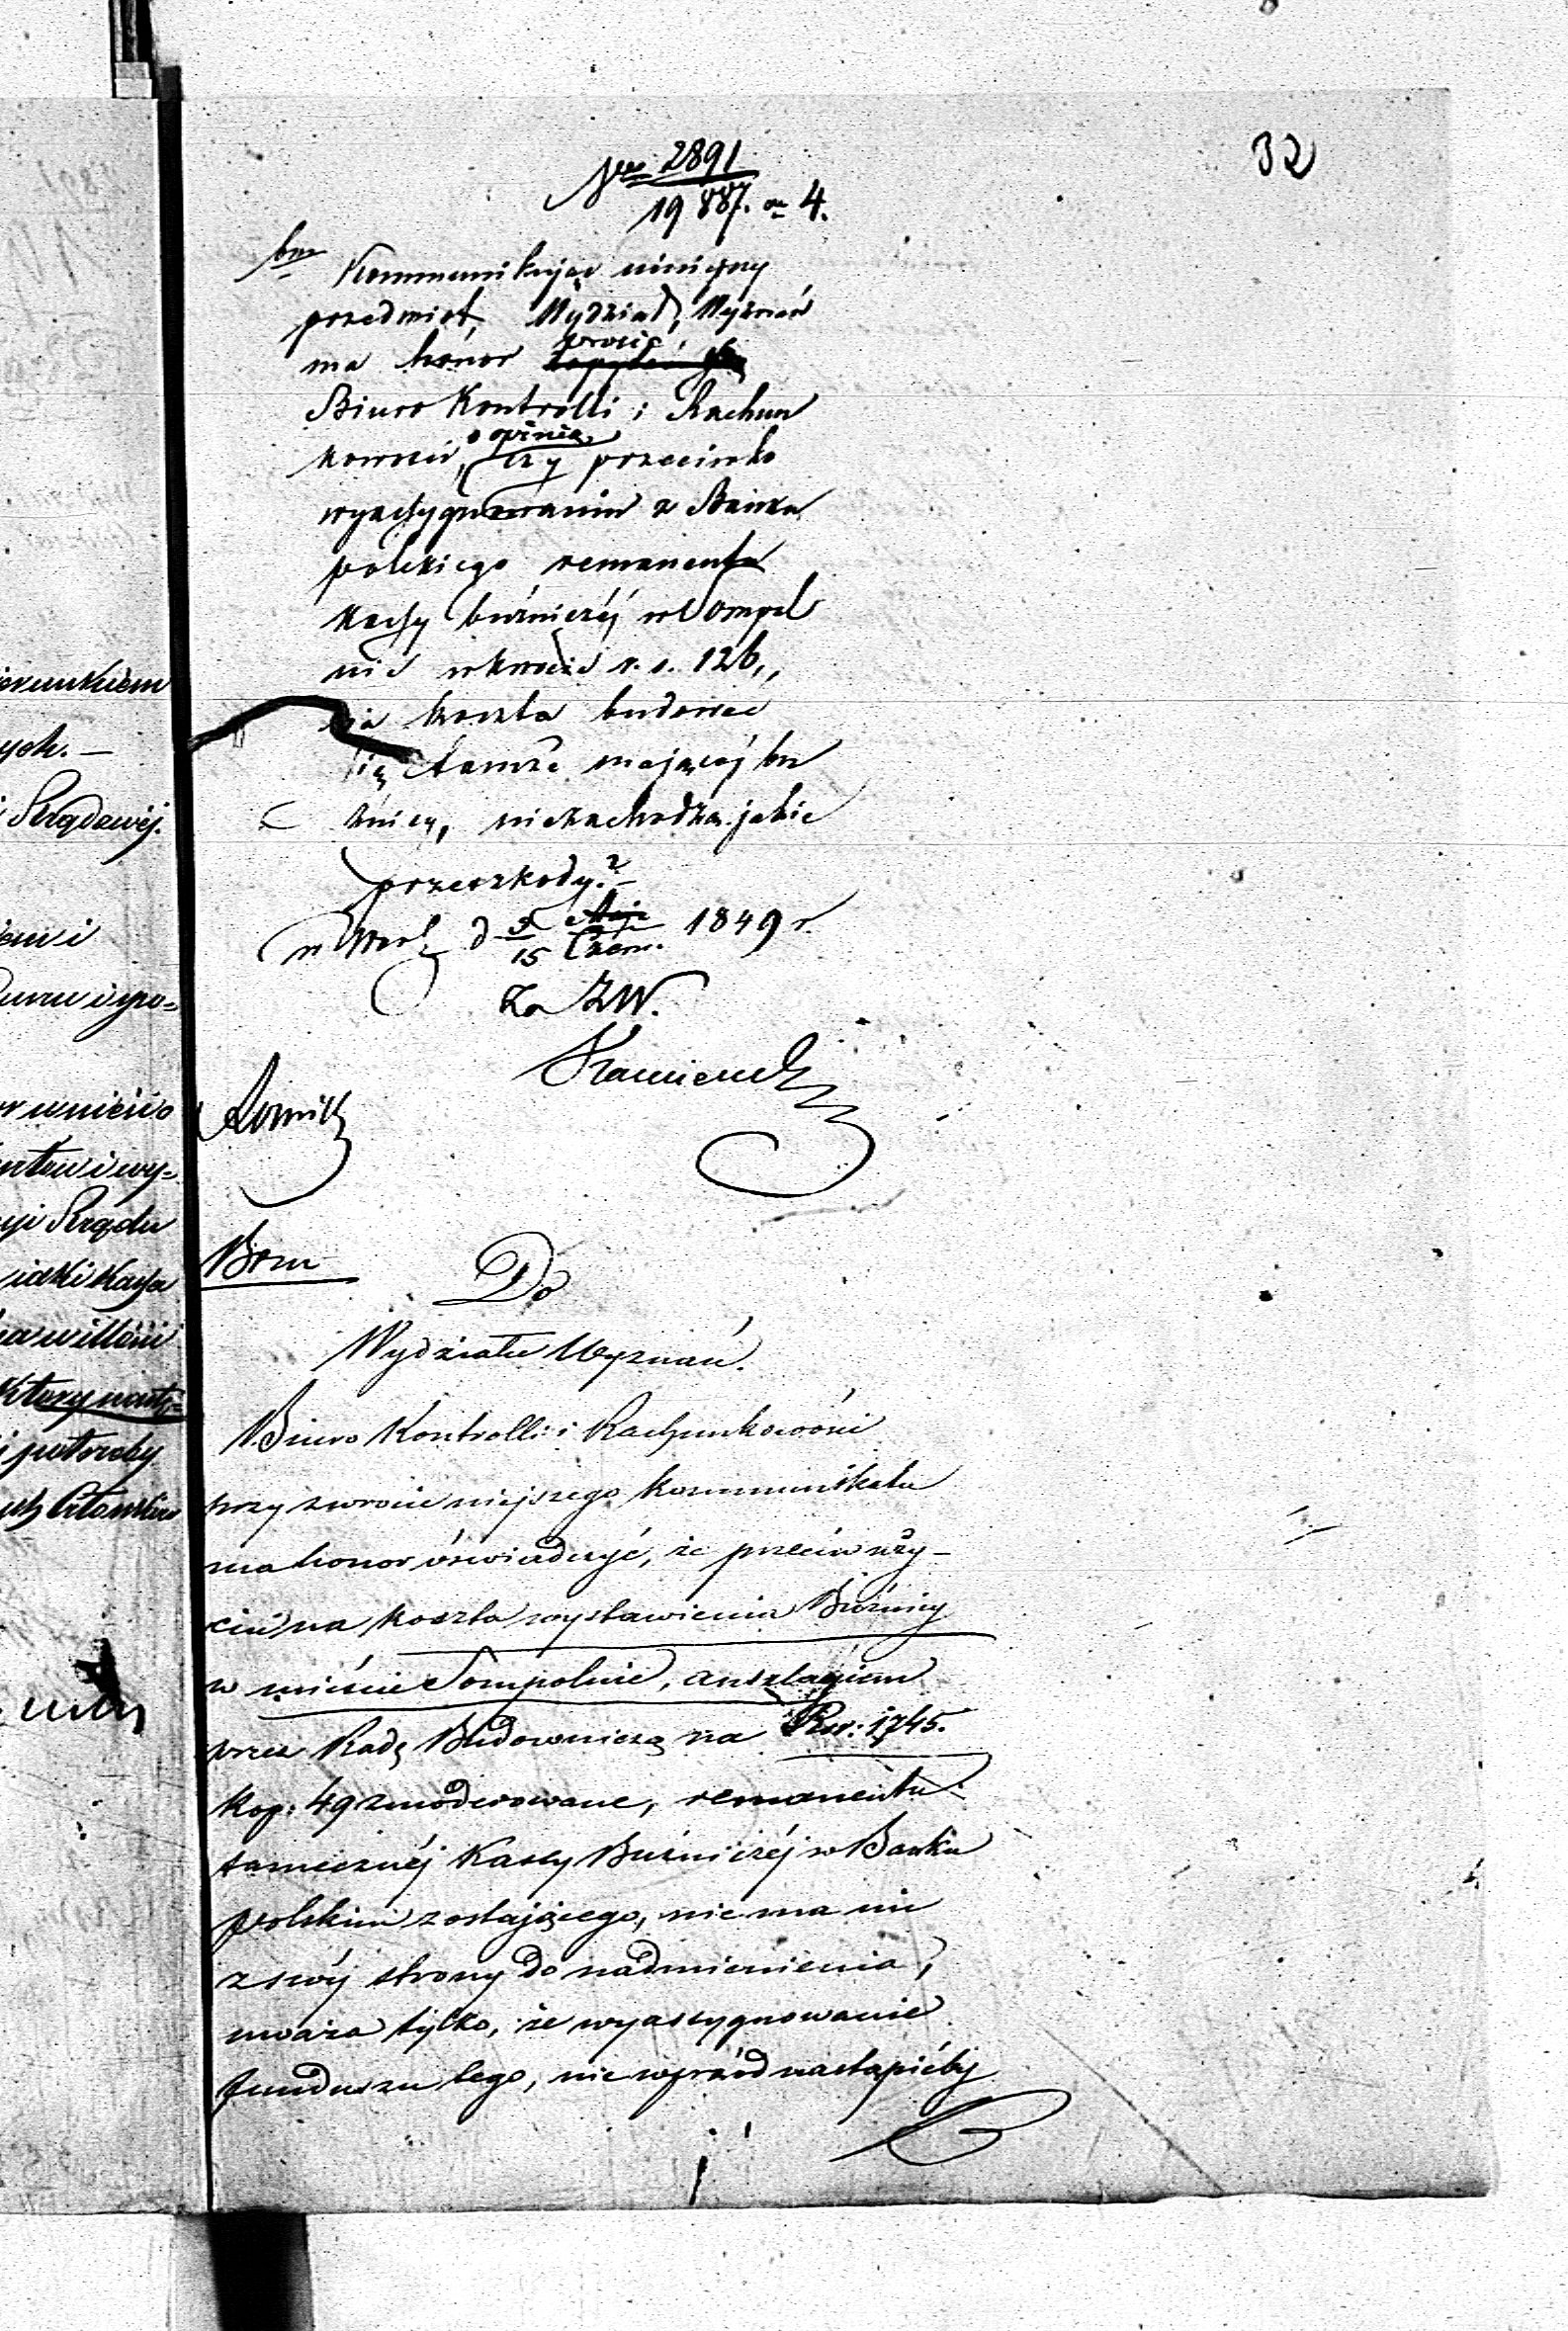 32
Nro 2891
19887. 4.
Kommunikując niniejszy
przedmiot, Wydział Wyznań
ma honor prosić
Biuro Kontrolli i Rachun
kowości, o opinią, czy przeciwko
wyassygnowaniu z Banku
polskiego remanentu
Kassy bużniczéj w Sompol
nie w kwocie r. s. 126,
na koszta budować
się tamże mającéj bu
żnicy, niezachodzą jakie
przeszkody?
d 3/15 Maja Czerw. 1849 r.
Za ZW.
Do
Wydziału Wyznań.
Biuro Kontrolli i Rachunkowości
przy zwrocie niejszego kommunikatu
ma honor oświadczyć, że przeciw uży-
ciu na koszta wystawienia Bużnicy
w mieście Sompolnie, anszlagiem
przez Radę Budowniczą na Rsr: 1745.
kop: 49 zmoderowane, remanentu
tamecznéj Kassy Bużniczéj w Banku
polskim zostającego, nie ma nic
z swéj strony do nadmienienia,
uważa tylko, że wyassygnowanie
funduszu tego, nie wprzód nastąpićby
ierunkiem
ych. —
i Rządowéj.
ieni i
or unieść o
yi Rządu
iaki Kassa
Który nastę=
i potrzeby